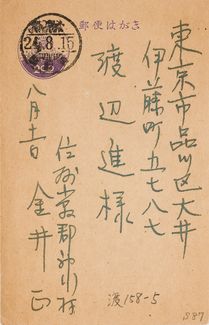 郵便はがき
24.8.15
東京市品川区大井
伊藤町五七八七
渡辺進様
八月十一日
金井正
渡158-5
S87